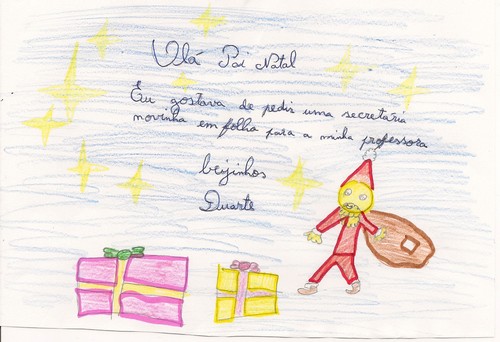 Olá Pai Natal
Eu gostava de pedir uma secretária
novinha em folha para a minha professora
beijinhos
Duarte